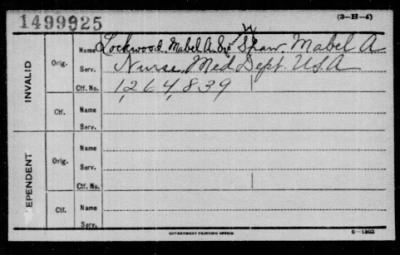 1499925
(3-H-4)
INVALID
Orig.
Name Lockwood, Mabel A. Shaw, Mabel A
Serv. Nurse, Med Dept. USA
Ctf. No. 1,264,839
Ctf.
Name
Serv.
DEPENDENT
Orig.
Name
Serv.
Ctf. No.
Ctf.
Name
Serv.
GOVERNMENT PRINTING OFFICE